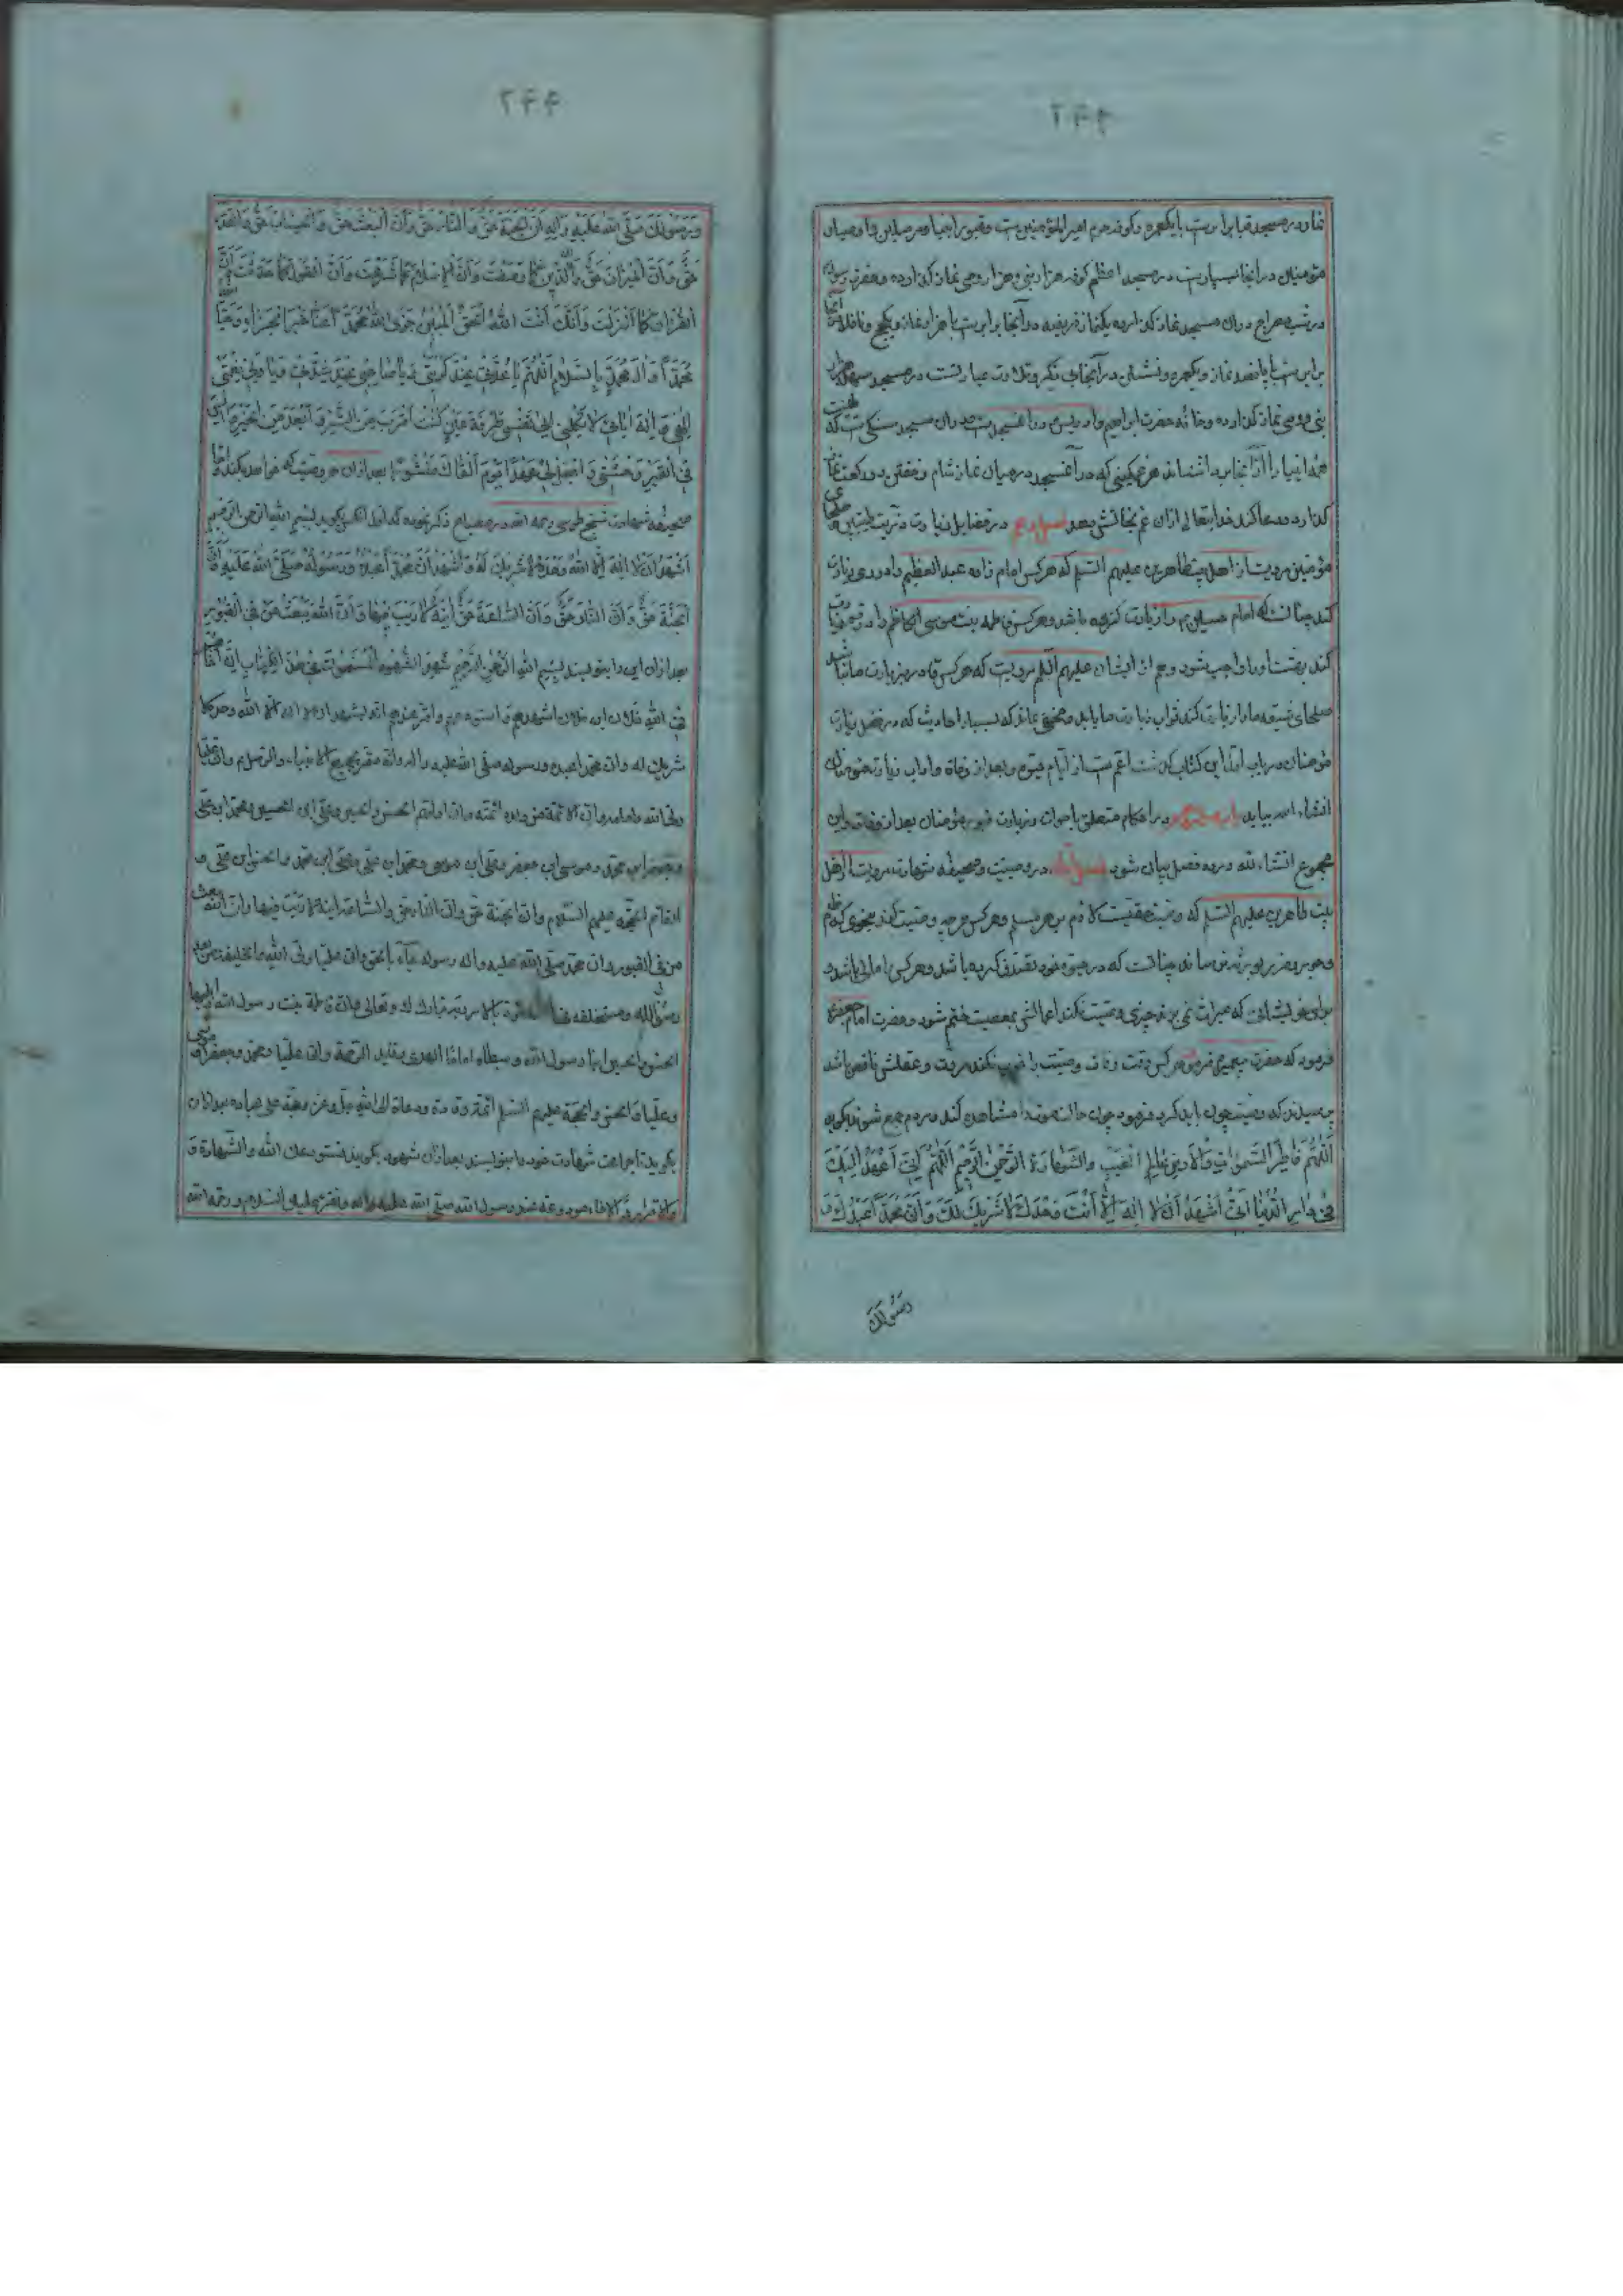 ۲۴۳
نماز در مسجد قبا برابرست با یکعمره و کوفه حرم امیر المؤمنین ست و قبور انبیا و مرسلین و اوصیای
مؤمنان در انجا بسیارست در مسجد اعظم کوفه هزار نبی و هزار وصی نماز گذارده و حضرت رسول
در شب معراج در ان مسجد نماز گذارده یکنماز فریضه در آنجا برابرست با هزار نماز و یکحج و نافلهٔ آنجا
برابرست با پانصد نماز و یکعمره و نشستن در آنجا بی ذکر و تلاوت عبادتست در مسجد سهله
نبی و وصی نماز گذارده و خانه حضرت ابراهیم و ادریس در انمسجد ست در ان مسجد سنگی ست که
همه انبیا را از انجا برداشته‌اند هر غمگینی که در آنمسجد در میان نماز شام و خفتن دو رکعت نماز
گذارد و دعا کند خدایتعالی از ان غم نجاتش دهد در فضایل زیارت و تربت
مؤمنین مرویست از اهل بیت طاهرین علیهم السلم که هر کس امام زاده عبد العظیم را در ری زیارت
کند چنانست که امام حسین را زیارت کرده باشد و هر کس فاطمه بنت موسی الکاظم را در قم زیارت
کند بهشت او را واجب شود و هم از ایشان علیهم السلم مرویست که هر کس قادر بر زیارت ما نباشد
صلحای شیعه ما را زیارت کند ثواب زیارت ما یابد و مخفی نماند که بسیار احادیث که در فضل زیارت
مؤمنان در باب اول این کتاب گذشت اعم ست از ایام حیوة و بعد از وفاة و اداب زیارت مؤمنان
انشاء الله بیاید در احکام متعلق باموات و زیارت قبور مؤمنان بعد از وفات و این
مجموع انشاء الله در ده فصل بیان شود در وصیت و صحیفه شهادت مرویست از اهل
بیت طاهرین علیهم السلم که وصیت حقیست لازم بر هر مسلم و هر کس هر چه وصیت کند بنحوی که
وصی بر برساند چنانست که در حیوة خود تصدق کرده باشد و هر کس را مالی باشد و
برای خویشانی که میراث نمی برند چیزی وصیت نکند اعمالش بمعصیت ختم شود و حضرت امام جعفر
فرمود که حضرت پیغمبر فرمود هر کس وقت وفات وصیت را خوب نکند مروت و عقلش ناقص باشد
پرسیدند که وصیت چون باید کرد فرمود چون حالت موت را مشاهده کند و مردم جمع شوند بگوید
اَللّٰهُمَّ فَاطِرَ السَّمٰوَاتِ وَالْاَرْضِ عَالِمَ الْغَیْبِ وَالشَّهَادَةِ الرَّحْمٰنَ الرَّحِیْمَ اَللّٰهُمَّ اِنِّیْ اَعْهَدُ اِلَیْکَ
فِیْ دَارِ الدُّنْیَا اَنِّیْ اَشْهَدُ اَنْ لَا اِلٰهَ اِلَّا اَنْتَ وَحْدَکَ لَا شَرِیْکَ لَکَ وَاَنَّ مُحَمَّدًا عَبْدُکَ وَ
رَسُوْلُکَ
۲۴۴
وَرَسُوْلُکَ صَلَّی اللّٰهُ عَلَیْهِ وَاٰلِهِ وَاَنَّ الْجَنَّةَ حَقٌّ وَالنَّارَ حَقٌّ وَاَنَّ الْبَعْثَ حَقٌّ وَالْحِسَابَ حَقٌّ وَالْقَدَرَ
حَقٌّ وَاَنَّ الْمِیْزَانَ حَقٌّ وَاَنَّ الدِّیْنَ کَمَا وَصَفْتَ وَاَنَّ الْاِسْلَامَ کَمَا شَرَعْتَ وَاَنَّ الْقَوْلَ کَمَا حَدَّثْتَ وَاَنَّ
الْقُرْاٰنَ کَمَا اَنْزَلْتَ وَاَنَّکَ اَنْتَ اللّٰهُ الْحَقُّ الْمُبِیْنُ جَزَی اللّٰهُ مُحَمَّدًا عَنَّا خَیْرَ الْجَزَاءِ وَحَیَّا اللّٰهُ
مُحَمَّدًا وَاٰلَ مُحَمَّدٍ بِالسَّلَامِ اَللّٰهُمَّ یَا عُدَّتِیْ عِنْدَ کُرْبَتِیْ وَیَا صَاحِبِیْ عِنْدَ شِدَّتِیْ وَیَا وَلِیَّ نِعْمَتِیْ
اِلٰهِیْ وَاِلٰهَ اٰبَائِیْ لَا تَکِلْنِیْ اِلٰی نَفْسِیْ طَرْفَةَ عَیْنٍ کُنْتُ اَقْرَبَ مِنَ الشَّرِّ وَاَبْعَدَ مِنَ الْخَیْرِ وَاٰنِسْ
فِی الْقَبْرِ وَحْشَتِیْ وَاجْعَلْ لِیْ عَهْدًا یَوْمَ اَلْقَاکَ مَنْشُوْرًا بعد از ان هر وصیت که خواهد بکند و اما
صحیفه شهادت شیخ طوسی رحمه الله در مصباح ذکر نموده که اول بگوید بسم الله الرحمن الرحیم
اَشْهَدُ اَنْ لَا اِلٰهَ اِلَّا اللّٰهُ وَحْدَهُ لَا شَرِیْکَ لَهُ وَاَشْهَدُ اَنَّ مُحَمَّدًا عَبْدُهُ وَرَسُوْلُهُ صَلَّی اللّٰهُ عَلَیْهِ وَاٰلِهِ وَاَنَّ
الْجَنَّةَ حَقٌّ وَاَنَّ النَّارَ حَقٌّ وَاَنَّ السَّاعَةَ حَقٌّ اٰتِیَةٌ لَا رَیْبَ فِیْهَا وَاَنَّ اللّٰهَ یَبْعَثُ مَنْ فِی الْقُبُوْرِ
بعد از ان این را بنویسند بِسْمِ اللّٰهِ الرَّحْمٰنِ الرَّحِیْمِ شَهِدَ الشُّهُوْدُ الْمُسَمَّوْنَ فِیْ هٰذَا الْکِتَابِ اَنَّ اَخَاهُمْ
فِی اللّٰهِ فلان ابن فلان اشهدهم و استودعهم و اقر عندهم انه یشهد ان لا اله الا الله وحده لا
شریک له و ان محمدا عبده و رسوله صلی الله علیه و اله و انه مقر بجمیع الانبیاء و الرسل و ان علیا
ولی الله و امامه و ان الائمة من ولده ائمته و ان اولهم الحسن و الحسین و علی ابن الحسین و محمد ابن علی
و جعفر ابن محمد و موسی ابن جعفر و علی ابن موسی و محمد ابن علی و علی ابن محمد و الحسن ابن علی و
القائم الحجة علیهم السلام و ان الجنة حق و ان النار حق و الساعة اتیة لا ریب فیها و ان الله یبعث
من فی القبور و ان محمدا صلی الله علیه و اله رسوله جاء بالحق و ان علیا ولی الله و الخلیفة من بعد
رسول الله و مستخلفه فی امته بامر ربه تبارک و تعالی و ان فاطمة بنت رسول الله و ابنیها
الحسن و الحسین ابنا رسول الله و سبطاه اماما الهدی و قائدا الرحمة و ان علیا و محمدا و جعفرا و موسی
و علیا و الحسن و الحجة علیهم السلم ائمة و قادة و دعاة الی الله جل و عز و حجة علی عباده بعد از ان
بگوید تا جماعت شهادت خود را بنویسند بعد از ان شهود بگویند نستودعک الله و الشهادة و
الاقرار و الاخاء عند رسول الله صلی الله علیه و اله و نقرء علیک السلام و رحمة الله